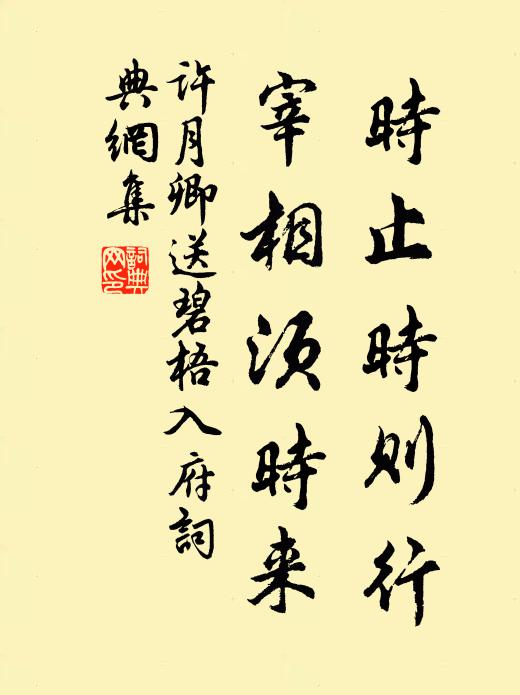 時止時則行
宰相須時来
许月卿送碧梧入府詞
典網集
詞典
网印